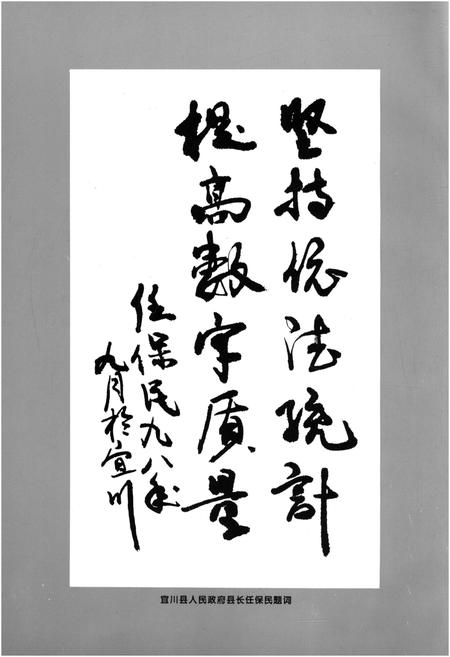 坚持依法统計
提高数字质量
任保民九八年
九月於宜川
宜川县人民政府县长任保民题词